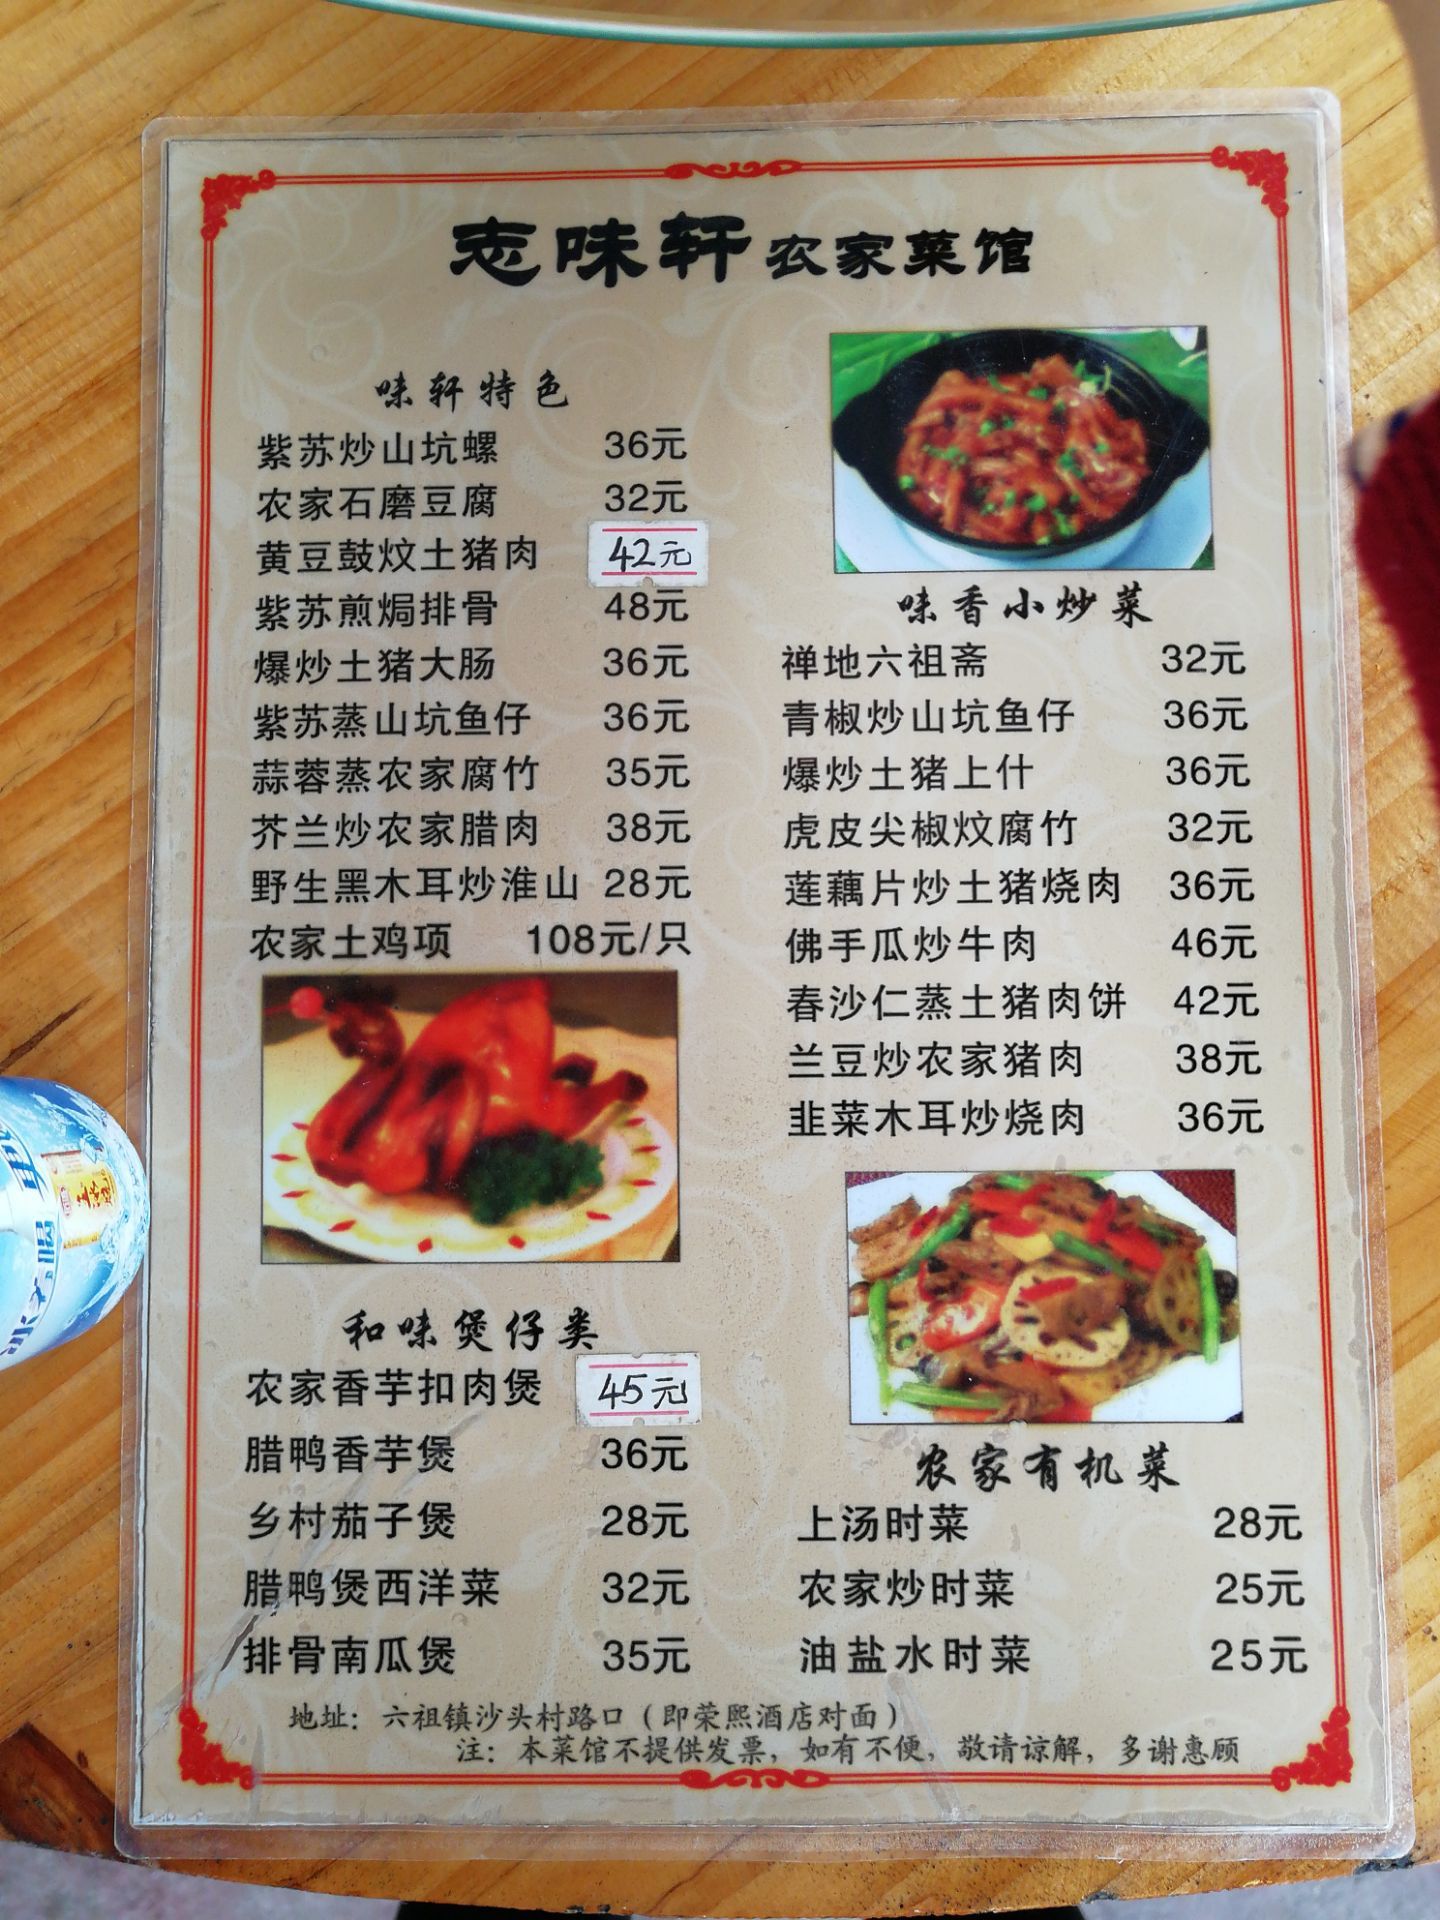 志味轩农家菜馆
味轩特色
紫苏炒山坑螺 36元
农家石磨豆腐 32元
黄豆鼓炆土猪肉 42元
紫苏煎焗排骨 48元
爆炒土猪大肠 36元
紫苏蒸山坑鱼仔 36元
蒜蓉蒸农家腐竹 35元
芥兰炒农家腊肉 38元
野生黑木耳炒淮山 28元
农家土鸡项 108元/只
和味煲仔类
农家香芋扣肉煲 45元
腊鸭香芋煲 36元
乡村茄子煲 28元
腊鸭煲西洋菜 32元
排骨南瓜煲 35元
味香小炒菜
禅地六祖斋 32元
青椒炒山坑鱼仔 36元
爆炒土猪上什 36元
虎皮尖椒炆腐竹 32元
莲藕片炒土猪烧肉 36元
佛手瓜炒牛肉 46元
春沙仁蒸土猪肉饼 42元
兰豆炒农家猪肉 38元
韭菜木耳炒烧肉 36元
农家有机菜
上汤时菜 28元
农家炒时菜 25元
油盐水时菜 25元
地址：六祖镇沙头村路口（即荣熙酒店对面）
注：本菜馆不提供发票，如有不便，敬请谅解，多谢惠顾